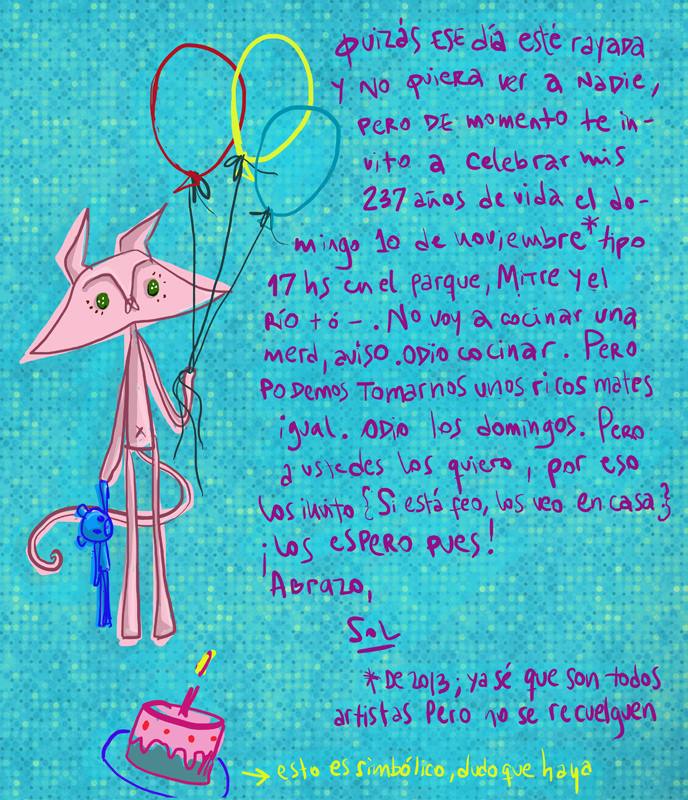 Quizás ESE día esté rayada
Y NO quiera ver a NADie,
pero DE momento te in-
vito a celebrar mis
237 años de vida el do-
mingo 10 de noviembre* tipo
17 hs en el parque, MITRE y el
RÍO + ó -. No voy a cocinar una
merd, aviso. ODIO cocinar. Pero
PODEMOS TOMARNOS unos ricos mates
igual. ODIO los domingos. Pero
a ustedes los quiero, por eso
los invito {Si está feo, los veo en casa}
¡Los espero pues!
Abrazo,
SoL
*De 2013; ya sé que son todos
artistas Pero no se recuelguen
→ esto es simbólico, dudo que haya